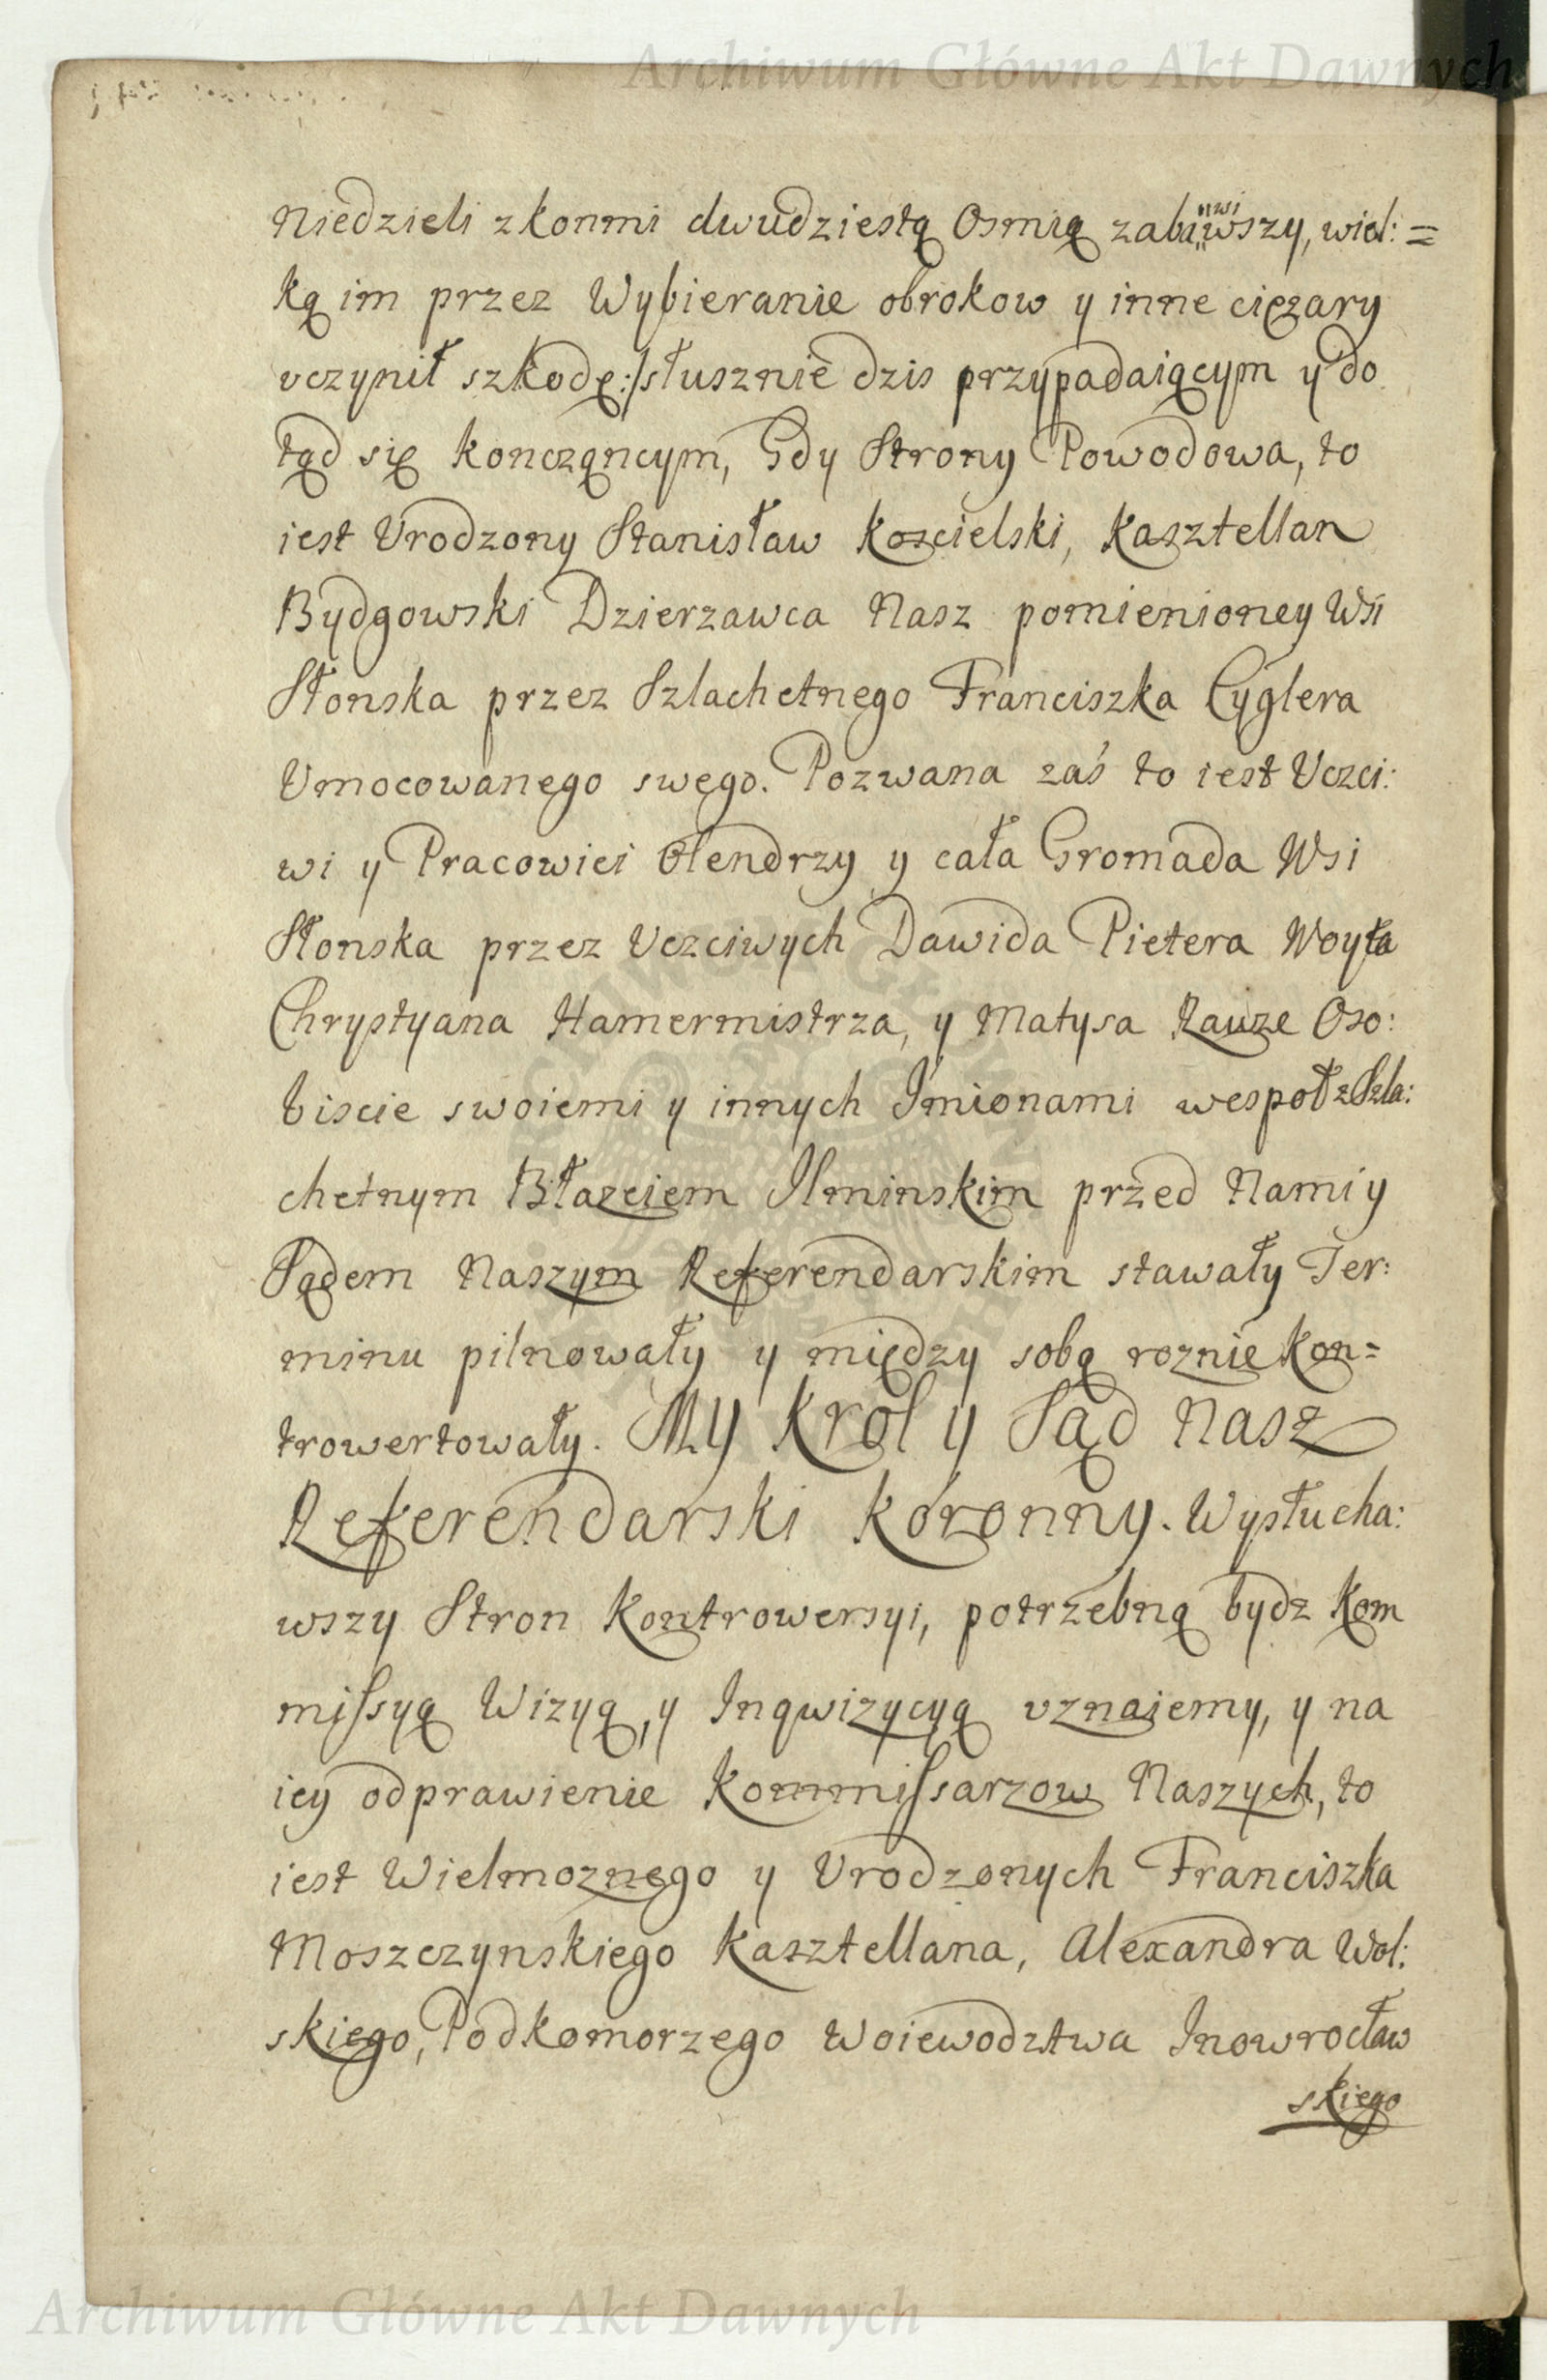 Archiwum Główne Akt Dawnych
Niedzieli z konmi dwudziestą Osmią zabawiwszy, wiel: =
ką im przez Wybieranie obrokow y inne cięzary
vczynił szkodę:/słusznie dzis przypadaiącym y do
tąd się konczącym, Gdy Strony Powodowa, to
iest Vrodzony Stanisław Koscielski, Kasztellan
Bydgowski Dzierzawca Nasz pomienioney Wsi
Słonska przez Szlachetnego Franciszka Cyglera
Vmocowanego swego. Pozwana zaś to iest Vczci:
wi y Pracowici Olendrzy y cała Gromada Wsi
Słonska przez Vczciwych Dawida Pietera Woyta
Chrystyana Hamermistrza, y Matysa Rauze Oso:
biscie swoiemi y innych Jmionami wespoł z Szla:
chetnym Błazeiem Jlminskim przed Nami y
Sądem Naszym Referendarskim stawały Ter:
minu pilnowały y między sobą roznie kon=
trowertowały. My Krol y Sąd Nasz
Referendarski Koronny. Wysłucha:
wszy Stron Kontrowersyi, potrzebną bydz Kom
missyą Wizyą, y Inqwizycyą vznaiemy, y na
iey odprawienie Kommissarzow Naszych, to
iest Wielmoznego y Vrodzonych Franciszka
Moszczynskiego Kasztellana, Alexandra Wol:
skiego, Podkomorzego Woiewodztwa Inowrocław
skiego
Archiwum Główne Akt Dawnych